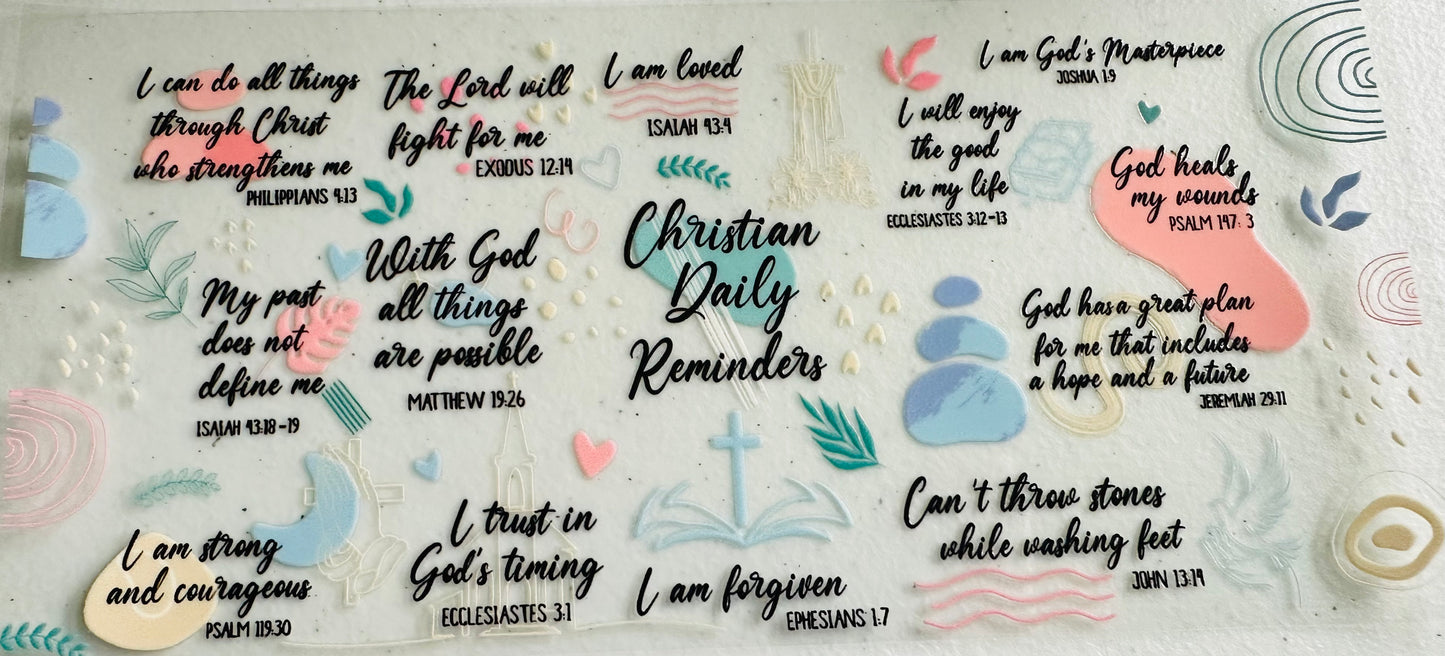 I can do all things
through Christ
who strengthens me
PHILIPPIANS 4:13
The Lord will
fight for me
EXODUS 12:14
I am loved
ISAIAH 43:4
I am God's Masterpiece
JOSHUA 1:9
I will enjoy
the good
in my life
ECCLESIASTES 3:12-13
God heals
my wounds
PSALM 147: 3
My past
does not
define me
ISAIAH 43:18-19
With God
all things
are possible
MATTHEW 19:26
Christian
Daily
Reminders
God has a great plan
for me that includes
a hope and a future
JEREMIAH 29:11
I am strong
and courageous
PSALM 119:30
I trust in
God's timing
ECCLESIASTES 3:1
I am forgiven
EPHESIANS 1:7
Can't throw stones
while washing feet
JOHN 13:14